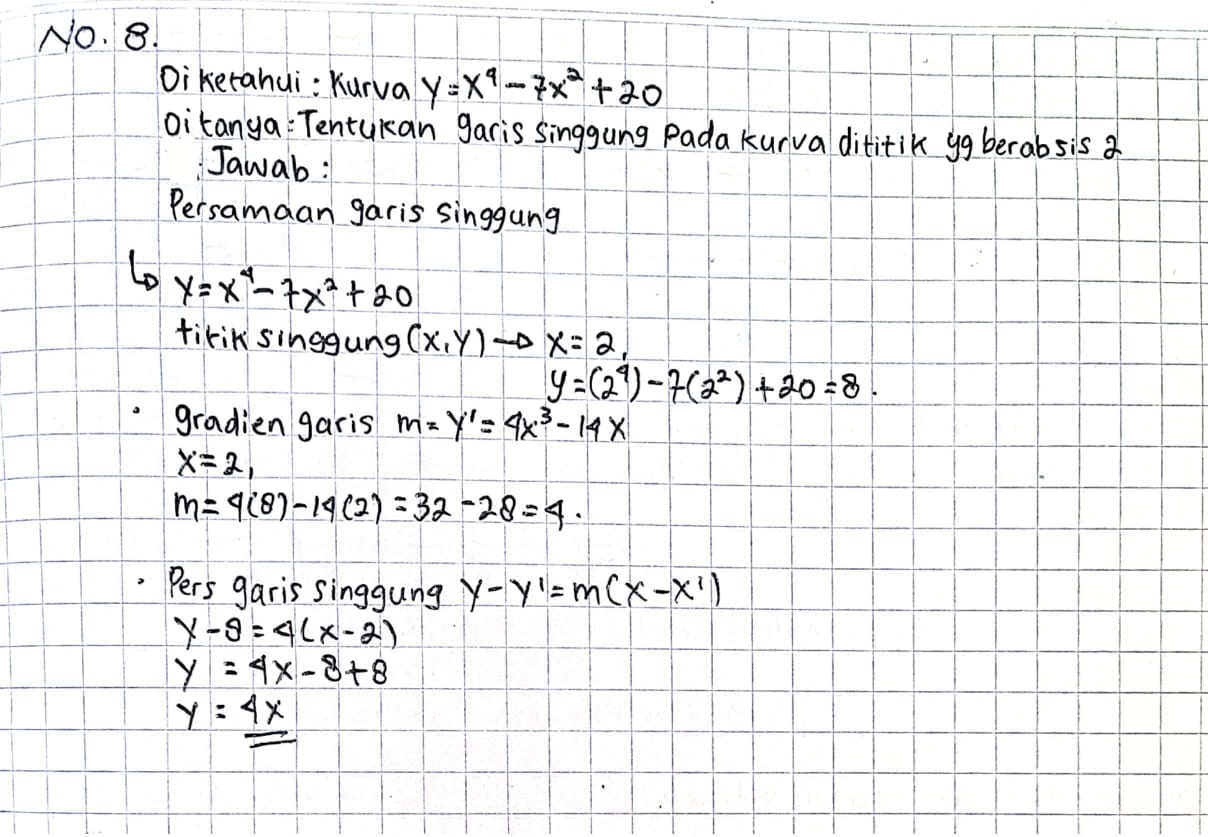 No. 8.
Diketahui : Kurva y = x⁴ - 7x² + 20
Ditanya : Tentukan garis singgung pada kurva dititik yg berabsis 2
Jawab :
Persamaan garis singgung
↳ y = x⁴ - 7x² + 20
titik singgung (x,y) → x = 2,
y = (2⁴) - 7(2²) + 20 = 8.
• gradien garis m = y' = 4x³ - 14x
x = 2,
m = 4(8) - 14(2) = 32 - 28 = 4.
• Pers garis singgung y - y' = m(x - x')
y - 8 = 4(x - 2)
y = 4x - 8 + 8
y = 4x